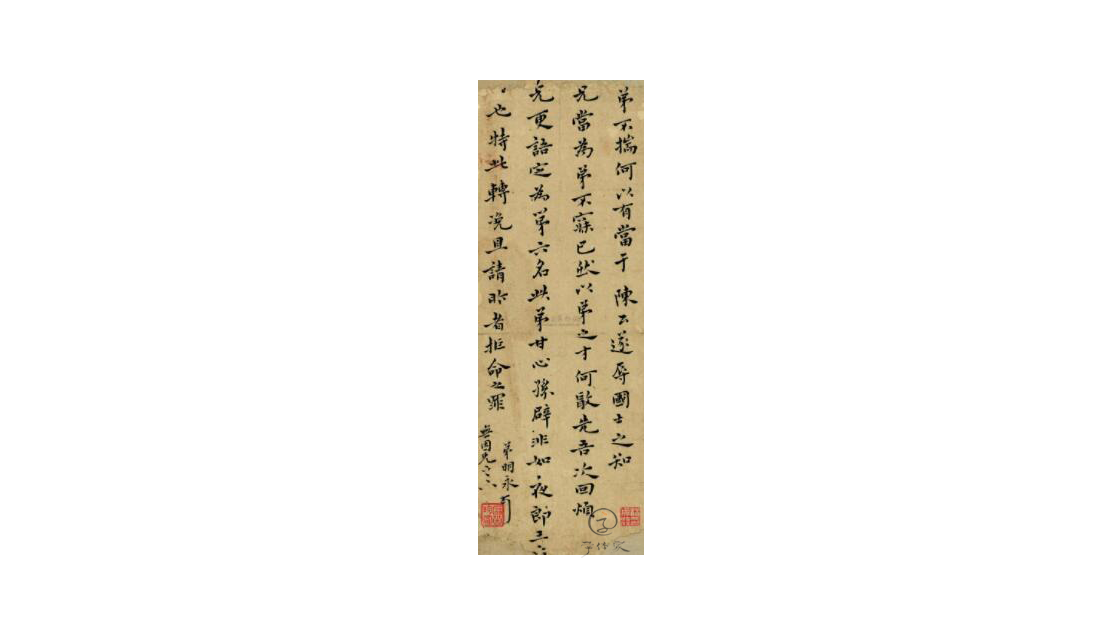 弟不揣何以有當于陳公遂辱國士之知
兄當為弟不寐已然以弟之才何敢先吾次回煩
兄更語定為弟六名此弟甘心孫辟非如夜郎王
也特此轉浼且請昨者拒命之罪
弟明永
無因兄